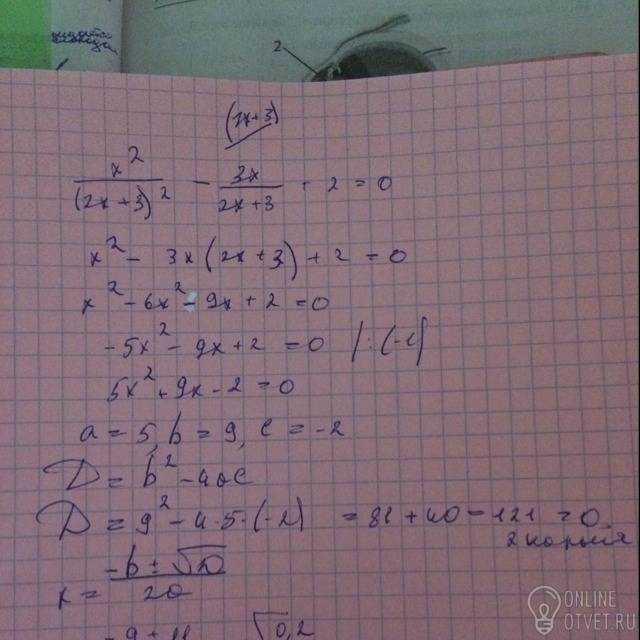 2
(2x+3)
x²/(2x+3)² - 3x/2x+3 + 2 = 0
x² - 3x(2x+3)+2 = 0
x² - 6x² - 9x + 2 = 0
-5x² - 9x + 2 = 0 /:(-1)
5x² + 9x - 2 = 0
a = 5, b = 9, c = -2
D = b² - 4ac
D = 9² - 4·5·(-2) = 81 + 40 = 121 > 0
2 корня
x = -b ± √D / 2a
-9 + 11 0,2
ONLINE
OTVET.RU